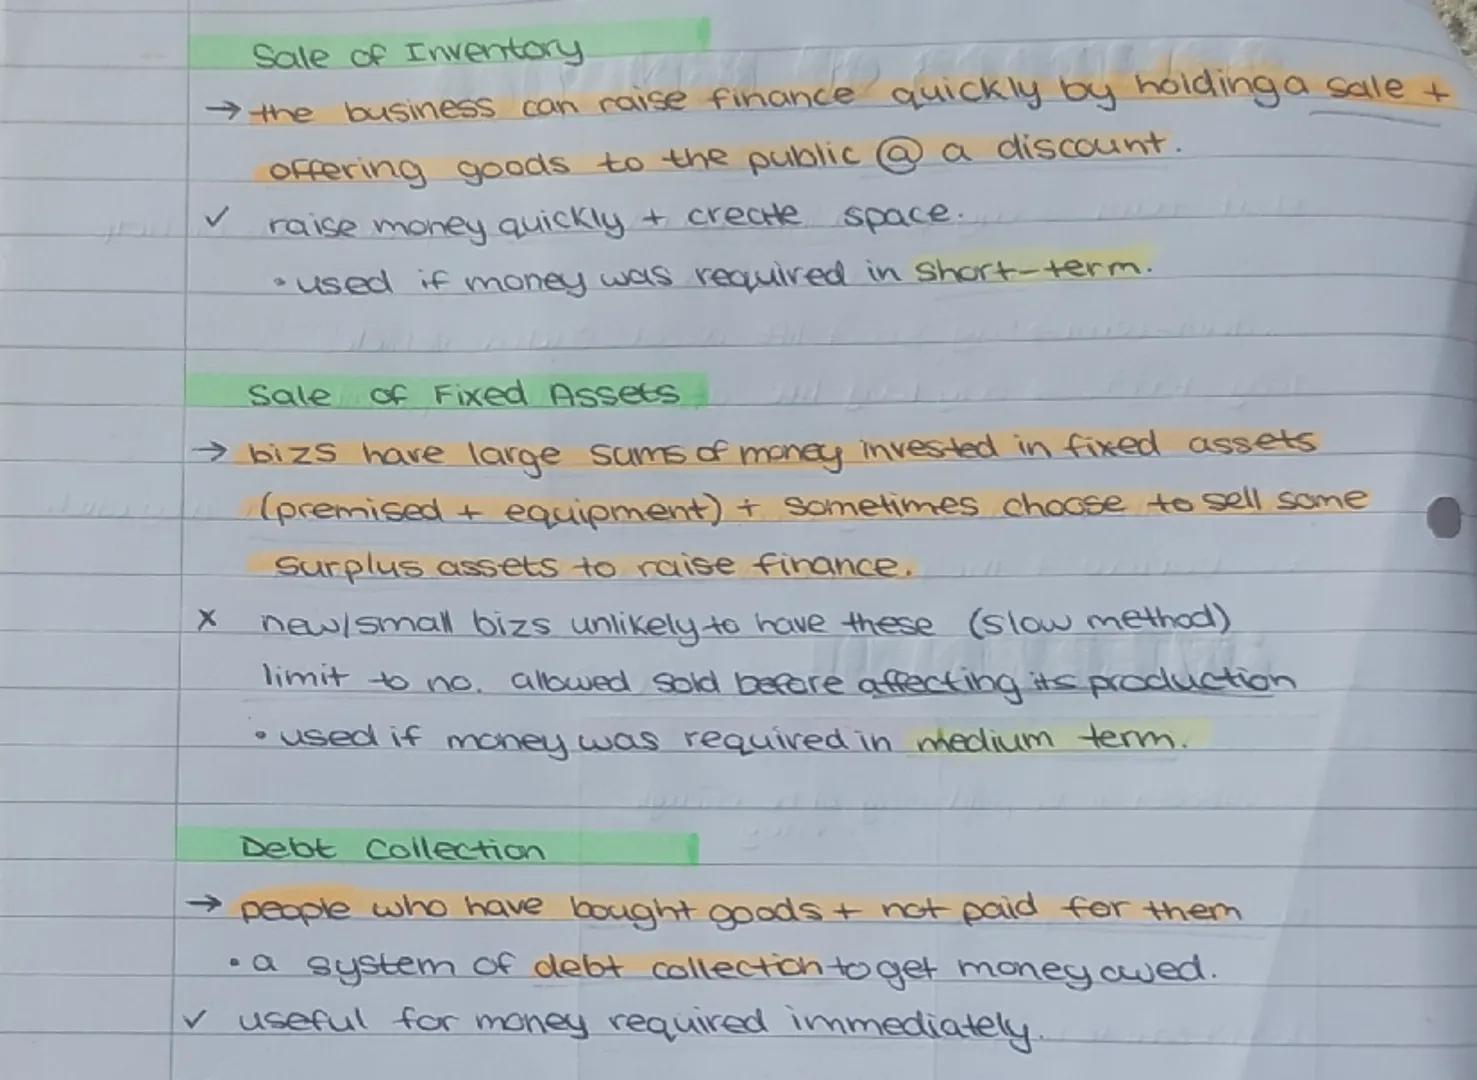 Sale of Inventory
→ the business can raise finance quickly by holding a sale +
offering goods to the public @ a discount.
✓ raise money quickly + create space.
• used if money was required in short-term.
Sale of Fixed Assets
→ bizs have large sums of money invested in fixed assets
(premised + equipment) + sometimes choose to sell some
surplus assets to raise finance.
x new/small bizs unlikely to have these (slow method)
limit to no. allowed sold before affecting its production
• used if money was required in medium term.
Debt Collection
→ people who have bought goods + not paid for them
• a system of debt collection to get money owed.
✓ useful for money required immediately.